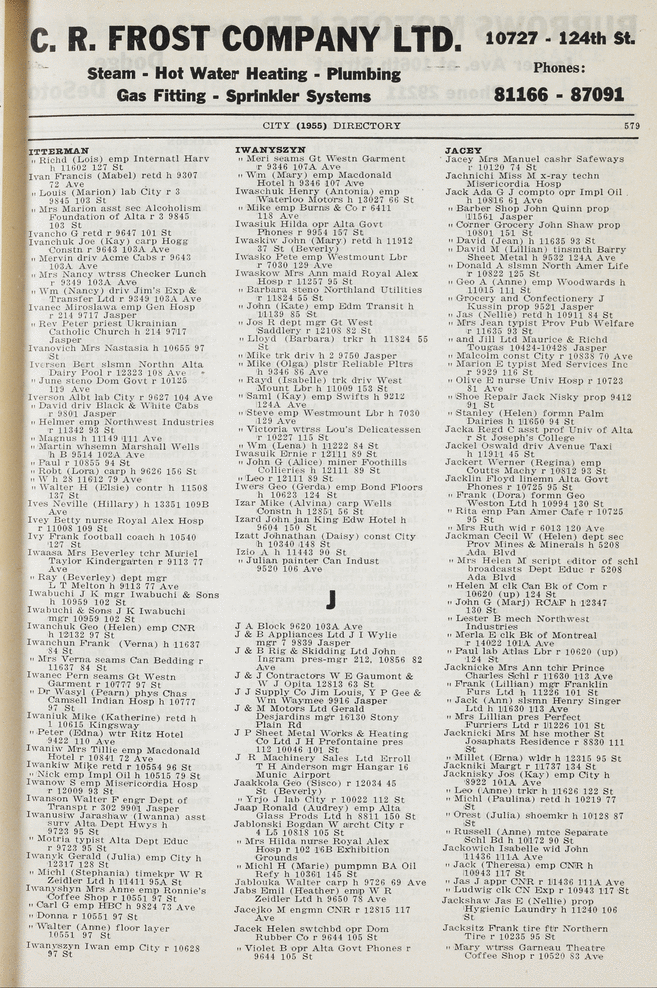 C. R. FROST COMPANY LTD.
10727 - 124th St.
Steam - Hot Water Heating - Plumbing
Gas Fitting - Sprinkler Systems
Phones:
81166 - 87091
CITY (1955) DIRECTORY 579
ITTERMAN
" Richd (Lois) emp Internatl Harv
h 11602 127 St
Ivan Francis (Mabel) retd h 9307
72 Ave
" Louis (Marion) lab City r 3
9845 103 St
" Mrs Marion asst sec Alcoholism
Foundation of Alta r 3 9845
103 St
Ivancho G retd r 9647 101 St
Ivanchuk Joe (Kay) carp Hogg
Constn r 9643 103A Ave
" Mervin driv Acme Cabs r 9643
103A Ave
" Mrs Nancy wtrss Checker Lunch
r 9349 103A Ave
" Wm (Nancy) driv Jim's Exp &
Transfer Ltd r 9349 103A Ave
Ivanec Miroslawa emp Gen Hosp
r 214 9717 Jasper
" Rev Peter priest Ukrainian
Catholic Church h 214 9717
Jasper
Ivanovich Mrs Nastasia h 10655 97
St
Iversen Bert slsmn Northn Alta
Dairy Pool r 12323 108 Ave
" June steno Dom Govt r 10125
119 Ave
Iverson Albt lab City r 9627 104 Ave
" David driv Black & White Cabs
r 9801 Jasper
" Helmer emp Northwest Industries
r 11342 93 St
" Magnus h 11149 111 Ave
" Martin whsemn Marshall Wells
h B 9514 102A Ave
" Paul r 10855 94 St
" Robt (Lora) carp h 9626 156 St
" W h 28 11612 79 Ave
" Walter H (Elsie) contr h 11508
137 St
Ives Neville (Hillary) h 13351 109B
Ave
Ivey Betty nurse Royal Alex Hosp
r 11008 109 St
Ivy Frank football coach h 10540
127 St
Iwaasa Mrs Beverley tchr Muriel
Taylor Kindergarten r 9113 77
Ave
" Ray (Beverley) dept mgr
L T Melton h 9113 77 Ave
Iwabuchi J K mgr Iwabuchi & Sons
h 10959 102 St
Iwabuchi & Sons J K Iwabuchi
mgr 10959 102 St
Iwanchuk Geo (Helen) emp CNR
h 12132 97 St
Iwanchun Frank (Verna) h 11637
84 St
" Mrs Verna seams Can Bedding r
11637 84 St
Iwanec Pern seams Gt Westn
Garment r 10777 97 St
" Dr Wasyl (Pearn) phys Chas
Camsell Indian Hosp h 10777
97 St
Iwaniuk Mike (Katherine) retd h
1 10615 Kingsway
" Peter (Edna) wtr Ritz Hotel
9422 110 Ave
Iwaniw Mrs Tillie emp Macdonald
Hotel r 10841 72 Ave
Iwankiw Mike retd r 10554 96 St
" Nick emp Impl Oil h 10515 79 St
Iwanow S emp Misericordia Hosp
r 12009 93 St
Iwanson Walter F engr Dept of
Transpt r 302 9901 Jasper
Iwanusiw Jarashaw (Iwanna) asst
surv Alta Dept Hwys h
9723 95 St
" Motria typist Alta Dept Educ
r 9723 95 St
Iwanyk Gerald (Julia) emp City h
12317 128 St
" Michl (Stephania) timekpr W R
Zeidler Ltd h 11411 95A St
Iwanyshyn Mrs Anne emp Ronnie's
Coffee Shop r 10551 97 St
" Carl G emp HBC h 9824 73 Ave
" Donna r 10551 97 St
" Walter (Anne) floor layer
10551 97 St
Iwanyszyn Iwan emp City r 10628
97 St
IWANYSZYN
" Meri seams Gt Westn Garment
r 9346 107A Ave
" Wm (Mary) emp Macdonald
Hotel h 9346 107 Ave
Iwaschuk Henry (Antonia) emp
Waterloo Motors h 13027 66 St
" Mike emp Burns & Co r 6411
118 Ave
Iwasiuk Hilda opr Alta Govt
Phones r 9954 157 St
Iwaskiw John (Mary) retd h 11912
37 St (Beverly)
Iwasko Pete emp Westmount Lbr
r 7030 129 Ave
Iwaskow Mrs Ann maid Royal Alex
Hosp r 11257 95 St
" Barbara steno Northland Utilities
r 11824 55 St
" John (Kate) emp Edm Transit h
11139 85 St
" Jos R dept mgr Gt West
Saddlery r 12108 82 St
" Lloyd (Barbara) trkr h 11824 55
St
" Mike trk driv h 2 9750 Jasper
" Mike (Olga) plstr Reliable Pltrs
h 9346 86 Ave
" Rayd (Isabelle) trk driv West
Mount Lbr h 11009 153 St
" Saml (Kay) emp Swifts h 9212
124A Ave
" Steve emp Westmount Lbr h 7030
129 Ave
" Victoria wtrss Lou's Delicatessen
r 10227 115 St
" Wm (Lena) h 11222 84 St
Iwasuik Ernie r 12111 89 St
" John G (Alice) miner Foothills
Collieries h 12111 89 St
" Leo r 12111 89 St
Iwers Geo (Gerda) emp Bond Floors
h 10623 124 St
Izar Mike (Alvina) carp Wells
Constn h 12851 56 St
Izard John jan King Edw Hotel h
9604 150 St
Izatt Johnathan (Daisy) const City
h 10340 148 St
Izio A h 11443 90 St
" Julian painter Can Indust
9520 106 Ave
J
J A Block 9620 103A Ave
J & B Appliances Ltd J I Wylie
mgr 7 9839 Jasper
J & B Rig & Skidding Ltd John
Ingram pres-mgr 212, 10856 82
Ave
J & J Contractors W E Gaumont &
W J Opita 12813 63 St
J J Supply Co Jim Louis, Y P Gee &
Wm Waymee 9916 Jasper
J & M Motors Ltd Gerald
Desjardins mgr 16130 Stony
Plain Rd
J P Sheet Metal Works & Heating
Co Ltd J H Prefontaine pres
112 10046 101 St
J R Machinery Sales Ltd Erroll
T H Anderson mgr Hangar 16
Munic Airport
Jaakkola Geo (Sisco) r 12034 45
St (Beverly)
" Yrjo J lab City r 10022 112 St
Jaap Ronald (Audrey) emp Alta
Glass Prods Ltd h 8811 150 St
Jablonski Bogdan W archt City r
4 L5 10818 105 St
" Mrs Hilda nurse Royal Alex
Hosp r 102 16B Exhibition
Grounds
" Michl H (Marie) pumpmn BA Oil
Refy h 10361 145 St
Jablouka Walter carp h 9726 69 Ave
Jabs Emil (Heather) emp W R
Zeidler Ltd h 9650 78 Ave
Jacejko M engmn CNR r 12815 117
Ave
Jacek Helen swtchbd opr Dom
Rubber Co r 9644 105 St
" Violet B opr Alta Govt Phones r
9644 105 St
JACEY
Jacey Mrs Manuel cashr Safeways
r 10120 74 St
Jachnichi Miss M x-ray techn
Misericordia Hosp
Jack Ada G J compto opr Impl Oil
h 10816 61 Ave
" Barber Shop John Quinn prop
11561 Jasper
" Corner Grocery John Shaw prop
10801 151 St
" David (Jean) h 11635 93 St
" David M (Lillian) tinsmth Barry
Sheet Metal h 9532 124A Ave
" Donald A slsmn North Amer Life
r 10822 125 St
" Geo A (Anne) emp Woodwards h
11015 111 St
" Grocery and Confectionery J
Kussin prop 9521 Jasper
" Jas (Nellie) retd h 10911 84 St
" Mrs Jean typist Prov Pub Welfare
r 11635 93 St
" and Jill Ltd Maurice & Richd
Tougas 10424-10428 Jasper
" Malcolm const City r 10838 70 Ave
" Marion E typist Med Services Inc
r 9929 116 St
" Olive E nurse Univ Hosp r 10723
81 Ave
" Shoe Repair Jack Nisky prop 9412
91 St
" Stanley (Helen) formn Palm
Dairies h 11650 94 St
Jacka Regd C asst prof Univ of Alta
r St Joseph's College
Jackel Oswald driv Avenue Taxi
h 11911 45 St
Jackert Werner (Regina) emp
Coutts Machy r 10812 93 St
Jacklin Floyd linemn Alta Govt
Phones r 10725 95 St
" Frank (Dora) formn Geo
Weston Ltd h 10994 130 St
" Rita emp Pan Amer Cafe r 10725
95 St
" Mrs Ruth wid r 6013 120 Ave
Jackman Cecil W (Helen) dept sec
Prov Mines & Minerals h 5208
Ada Blvd
" Mrs Helen M script editor of schl
broadcasts Dept Educ r 5208
Ada Blvd
" Helen M clk Can Bk of Com r
10620 (up) 124 St
" John G (Marj) RCAF h 12347
130 St
" Lester B mech Northwest
Industries
" Merla E clk Bk of Montreal
r 14022 101A Ave
" Paul lab Atlas Lbr r 10620 (up)
124 St
Jacknicke Mrs Ann tchr Prince
Charles Schl r 11630 113 Ave
" Frank (Lillian) mgr Franklin
Furs Ltd h 11226 101 St
" Jack (Ann) slsmn Henry Singer
Ltd h 11630 113 Ave
" Mrs Lillian pres Perfect
Furriers Ltd r 11226 101 St
Jacknicki Mrs M hse mother St
Josaphats Residence r 8830 111
St
" Millet (Erna) wldr h 12315 95 St
Jackniki Margt r 11737 134 St
Jacknisky Jos (Kay) emp City h
8922 101A Ave
" Leo (Anne) trkr h 11626 122 St
" Michl (Paulina) retd h 10219 77
St
" Orest (Julia) shoemkr h 10128 87
St
" Russell (Anne) mtce Separate
Schl Bd h 10172 90 St
Jackowich Isabelle wid John
11436 111A Ave
" Jack (Theresa) emp CNR h
10943 117 St
" Jas J appr CNR r 11436 111A Ave
" Ludwig clk CN Exp r 10943 117 St
Jackshaw Jas E (Nellie) prop
Hygienic Laundry h 11240 106
St
Jacksitz Frank tire ftr Northern
Tire r 10235 95 St
" Mary wtrss Garneau Theatre
Coffee Shop r 10520 83 Ave